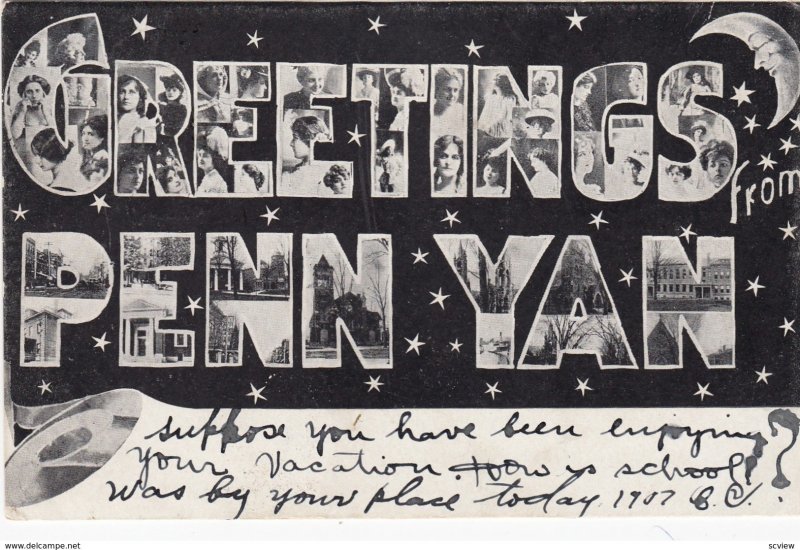 GREETINGS
from
PENN YAN
suppose you have been enjoying
your Vacation. How is school?
was by your place today. 1907 C.V.
scview